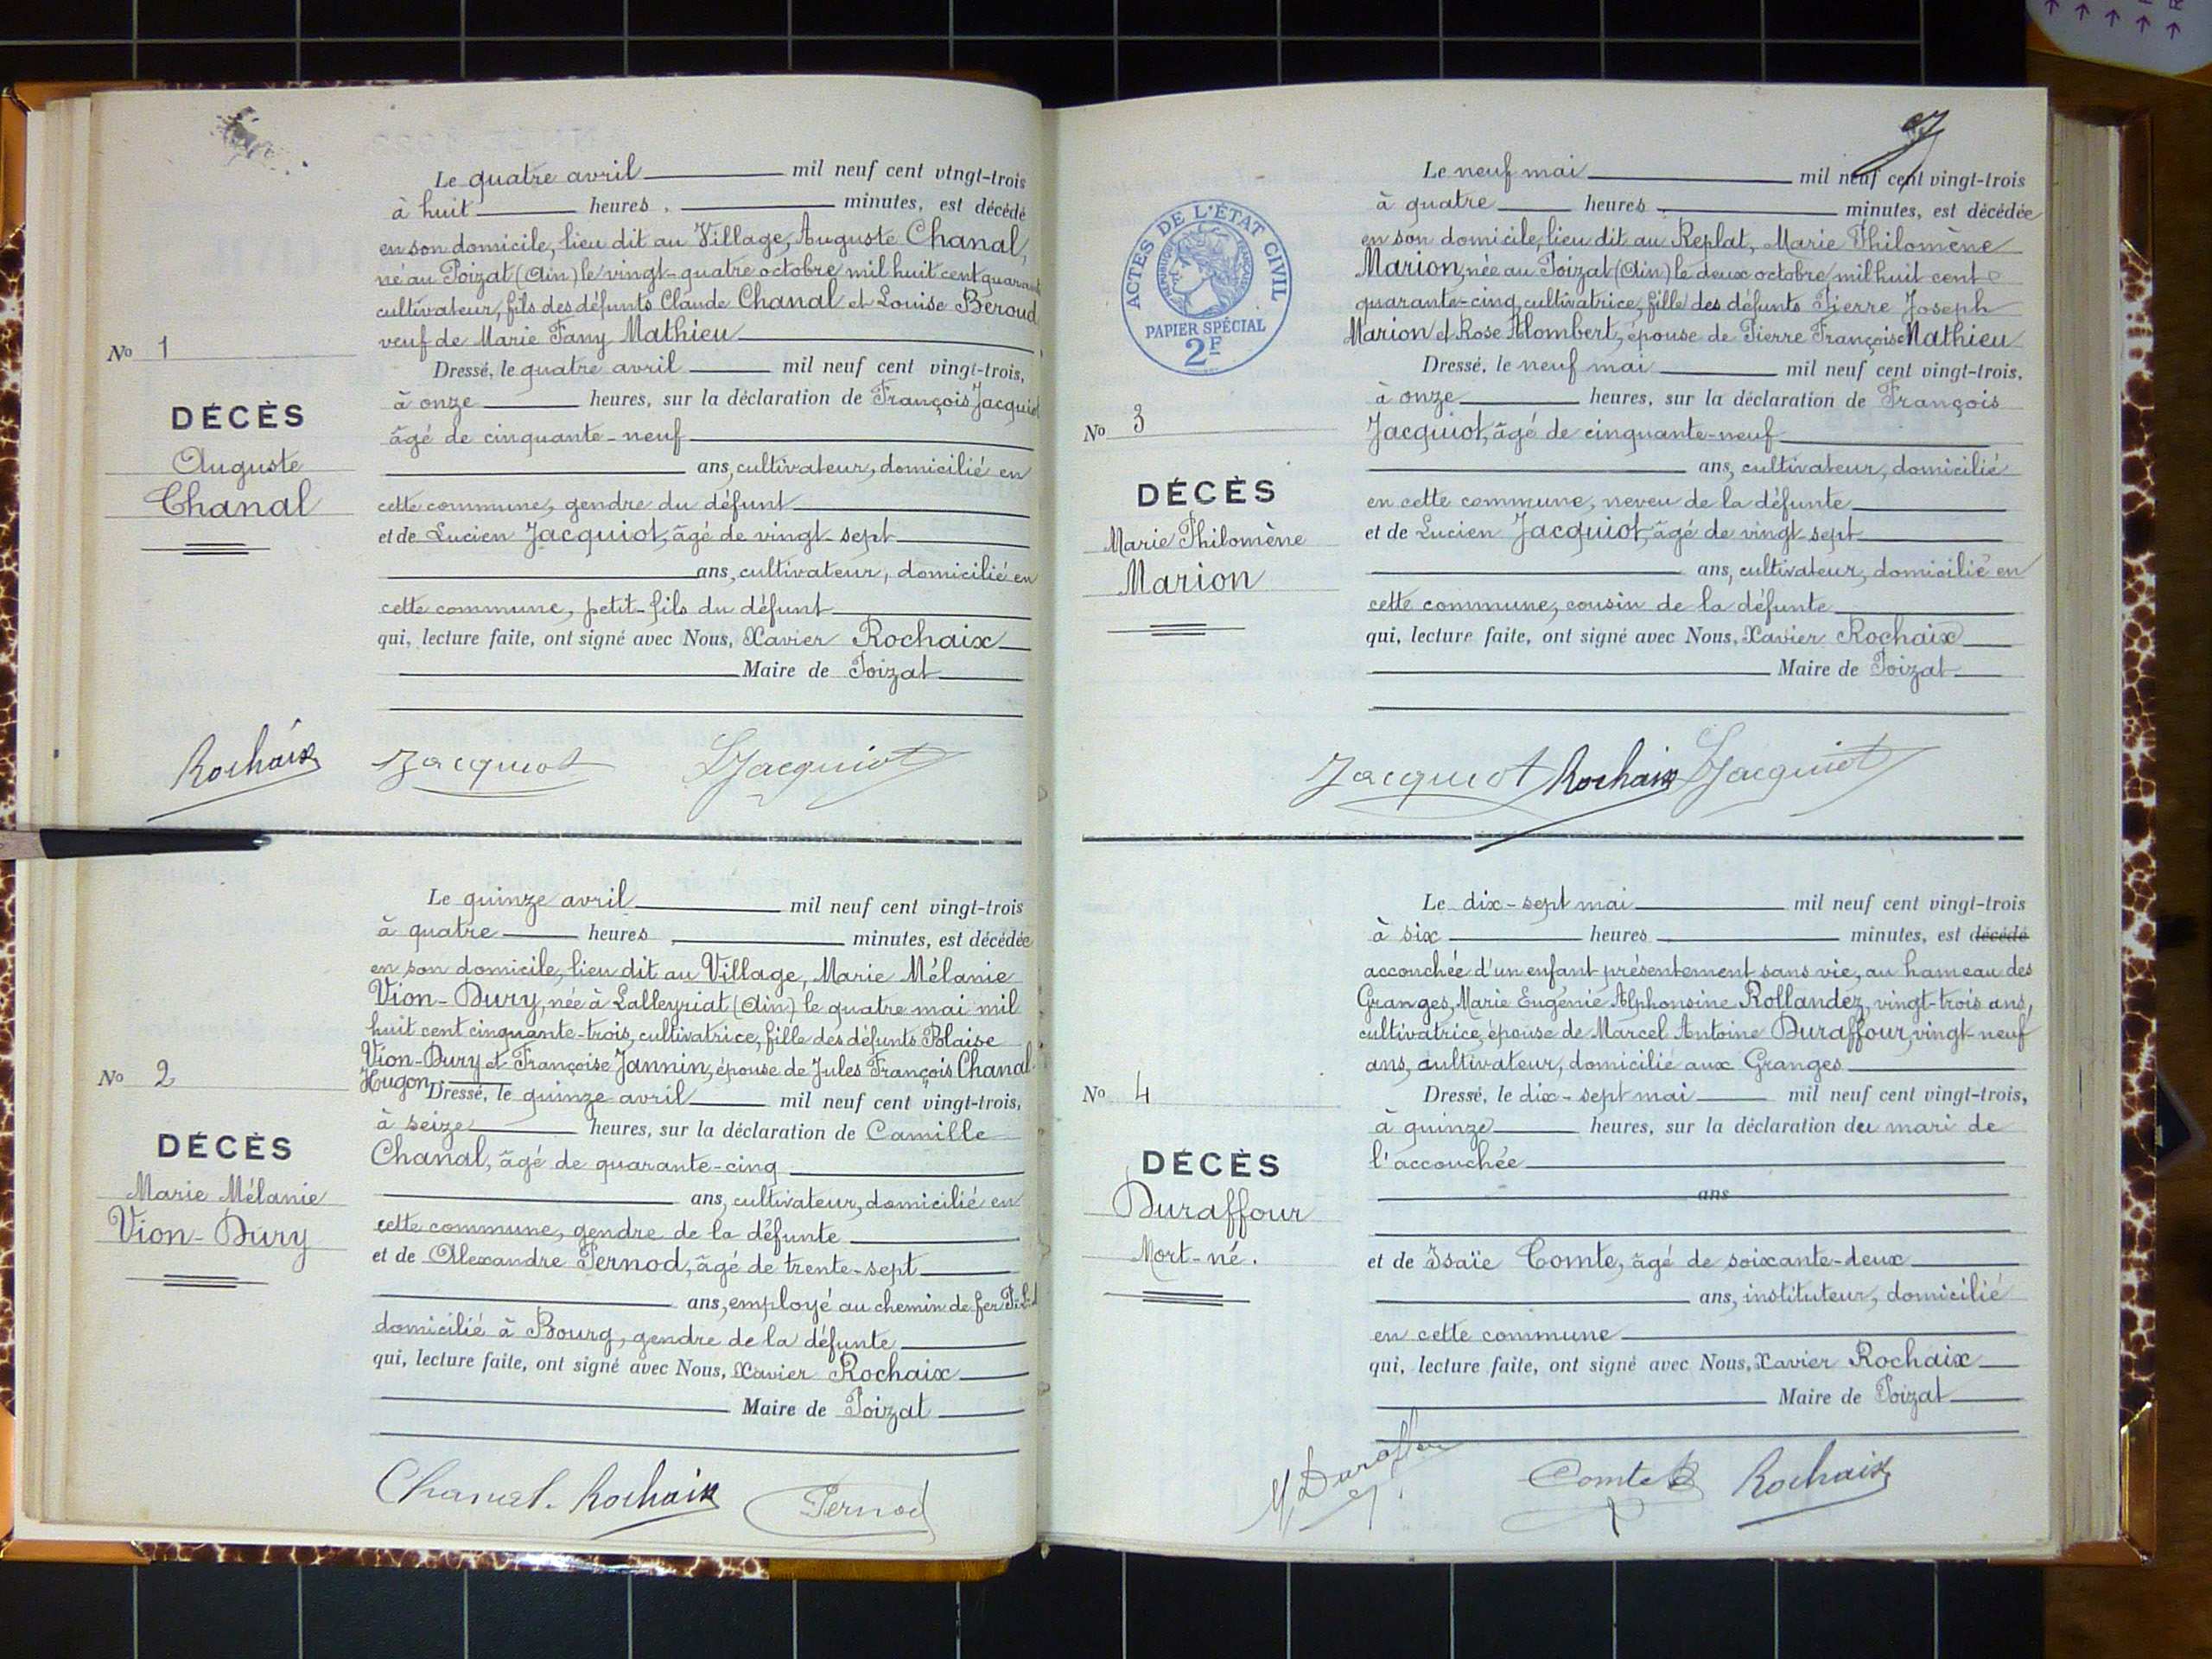 Le quatre avril mil neuf cent vingt-trois
à huit heures, minutes, est décédé
en son domicile, lieu dit au Village, Auguste Chanal,
né au Poizat (Ain) le vingt-quatre octobre mil huit cent quarante
cultivateur, fils des défunts Claude Chanal et Louise Beroud
veuf de Marie Fany Mathieu
No 1
Dressé, le quatre avril mil neuf cent vingt-trois,
à onze heures, sur la déclaration de François Jacquiot
DÉCÈS
Auguste
Chanal
âgé de cinquante-neuf
ans, cultivateur, domicilié en
cette commune, gendre du défunt
et de Lucien Jacquiot, âgé de vingt-sept
ans, cultivateur, domicilié en
cette commune, petit-fils du défunt
qui, lecture faite, ont signé avec Nous, Xavier Rochaix
Maire de Poizat
Rochaix Jacquiot LJacquiot
Le quinze avril mil neuf cent vingt-trois
à quatre heures minutes, est décédée
en son domicile, lieu dit au Village, Marie Mélanie
Vion-Dury, née à Lalleyriat (Ain) le quatre mai mil
huit cent cinquante-trois, cultivatrice, fille des défunts Blaise
Vion-Dury et Françoise Jannin, épouse de Jules François Chanal-
Hugon.
No 2
Dressé, le quinze avril mil neuf cent vingt-trois,
à seize heures, sur la déclaration de Camille
DÉCÈS
Marie Mélanie
Vion-Dury
Chanal, âgé de quarante-cinq
ans, cultivateur, domicilié en
cette commune, gendre de la défunte
et de Alexandre Pernod, âgé de trente-sept
ans, employé au chemin de fer
domicilié à Bourg, gendre de la défunte
qui, lecture faite, ont signé avec Nous, Xavier Rochaix
Maire de Poizat
Chanal. Rochaix Pernod
Le neuf mai mil neuf cent vingt-trois
à quatre heures minutes, est décédée
en son domicile, lieu dit au Replat, Marie Philomène
Marion, née au Poizat (Ain) le deux octobre mil huit cent
quarante-cinq, cultivatrice, fille des défunts Pierre Joseph
Marion et Rose Alombert, épouse de Pierre François Mathieu
ACTES DE L'ÉTAT CIVIL
RÉPUBLIQUE FRANÇAISE
PAPIER SPÉCIAL
2F
Dressé, le neuf mai mil neuf cent vingt-trois,
à onze heures, sur la déclaration de François
No 3
DÉCÈS
Marie Philomène
Marion
Jacquiot, âgé de cinquante-neuf
ans, cultivateur, domicilié
en cette commune, neveu de la défunte
et de Lucien Jacquiot, âgé de vingt-sept
ans, cultivateur, domicilié en
cette commune, cousin de la défunte
qui, lecture faite, ont signé avec Nous, Xavier Rochaix
Maire de Poizat
Jacquiot Rochaix LJacquiot
Le dix-sept mai mil neuf cent vingt-trois
à six heures minutes, est décédé
accouchée d'un enfant présentement sans vie, au hameau des
Granges, Marie Eugénie Alphonsine Rollandez, vingt-trois ans,
cultivatrice, épouse de Marcel Antoine Duraffour, vingt-neuf
ans, cultivateur, domicilié aux Granges
No 4
Dressé, le dix-sept mai mil neuf cent vingt-trois,
à quinze heures, sur la déclaration du mari de
DÉCÈS
Duraffour
Mort-né.
l'accouchée
ans
et de Isaïe Comte, âgé de soixante-deux
ans, instituteur, domicilié
en cette commune
qui, lecture faite, ont signé avec Nous, Xavier Rochaix
Maire de Poizat
Comte Rochaix